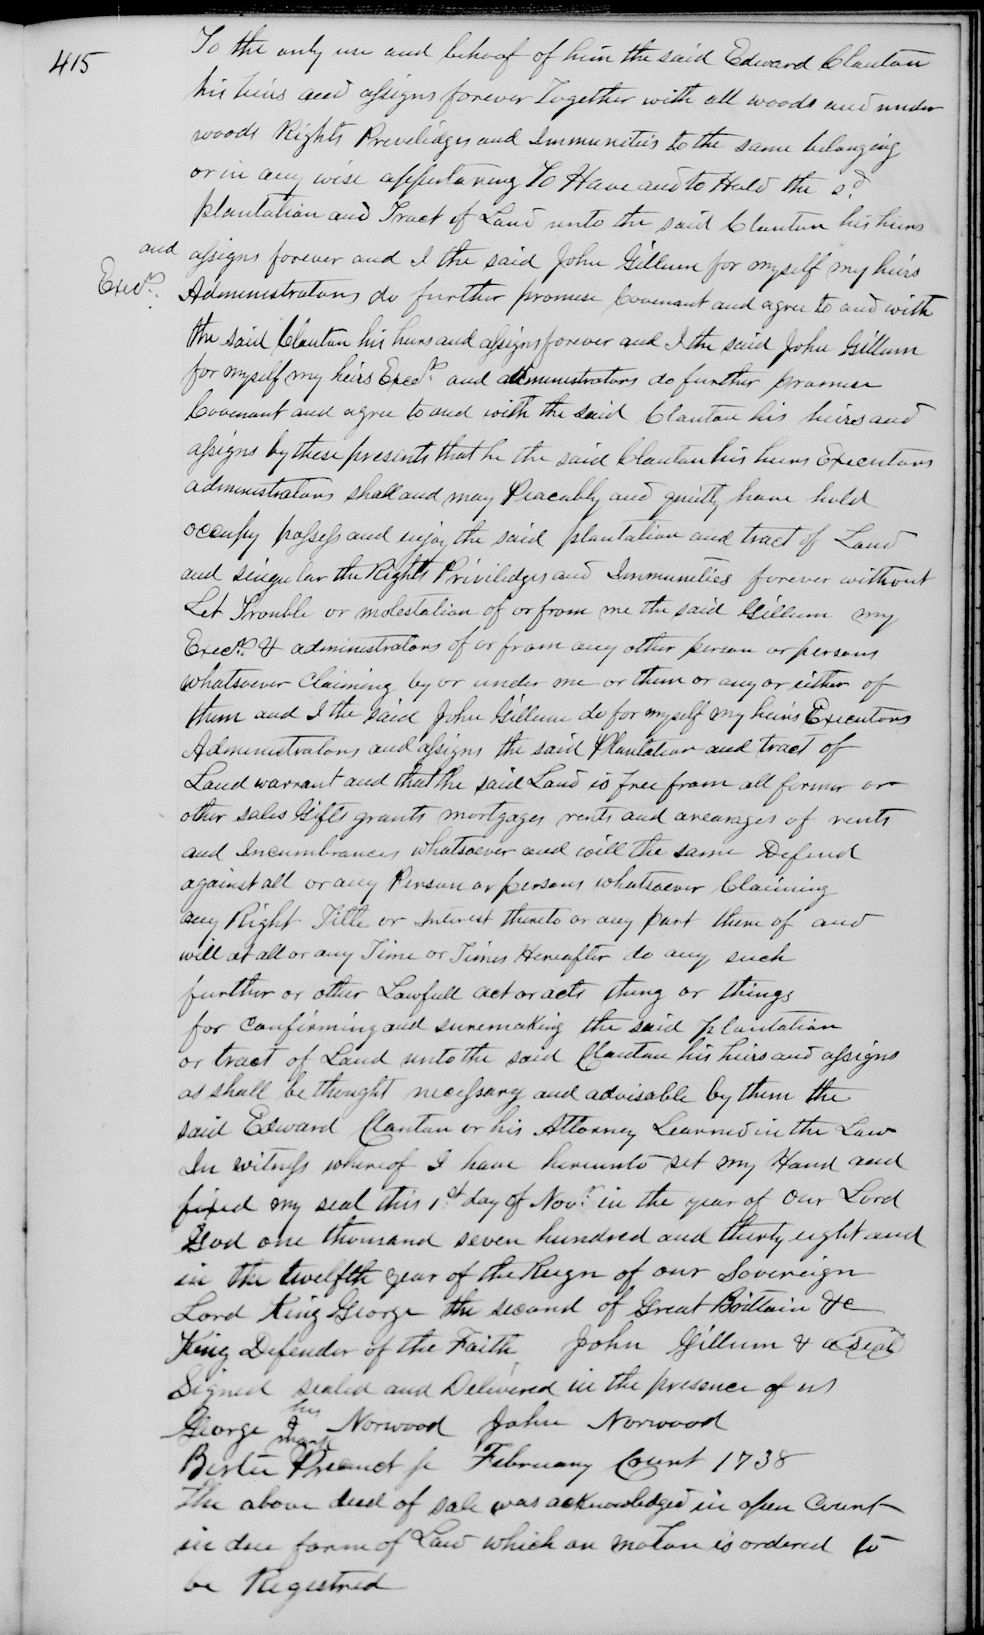 415
To the only use and behoof of him the said Edward Clanton
his heirs and assigns forever Together with all woods and under
woods Rights Previlidges and Immunities to the same belonging
or in any wise appertaning To Have and to Hold the sd
plantation and Tract of Land unto the said Clanton his heirs
and assigns forever and I the said John Gillum for myself my heirs
Execrs. Administrators do further promise Covenant and agree to and with
the said Clanton his heirs and assigns forever and I the said John Gillum
for myself my heirs Execrs and administrators do further promise
Covenant and agree to and with the said Clanton his heirs and
assigns by these presents that he the said Clanton his heirs Executors
administrators shall and may Peacably and quietly have hold
occupy possess and enjoy the said plantation and tract of Land
and singular the Rights Priviledges and Immunities forever without
Let Trouble or molestation of or from me the said Gillum my
Execrs & administrators of or from any other person or persons
whatsoever Claiming by or under me or them or any or either of
them and I the said John Gillum do for myself my heirs Executors
Administrators and assigns the said Plantation and tract of
Land warrant and that the said Land is free from all former or
other sales Gifts grants mortgages rents and arearages of rents
and Incumbrances whatsoever and will the same Defend
against all or any Person or persons whatsoever Claiming
any Right Title or Interest thereto or any part there of and
will at all or any Time or Times Hereafter do any such
further or other Lawfull act or acts thing or things
for confirming and suremaking the said plantation
or tract of Land unto the said Clanton his heirs and assigns
as shall be thought necessary and advisable by them the
said Edward Clanton or his Attorney Learned in the Law
In witness whereof I have hereunto set my Hand and
fixed my seal this 1st day of Novr. in the year of our Lord
God one thousand seven hundred and thirty eight and
in the twelfth year of the Reign of our Sovereign
Lord King George the second of Great Brittain &c
King Defender of the Faith John Gillum & a seal
Signed sealed and Delivered in the presence of us
George his mark Norwood John Norwood
Bertie Precinct ss February Court 1738
The above deed of sale was acknowledged in open Court
in due form of Law which on motion is ordered to
be Registred